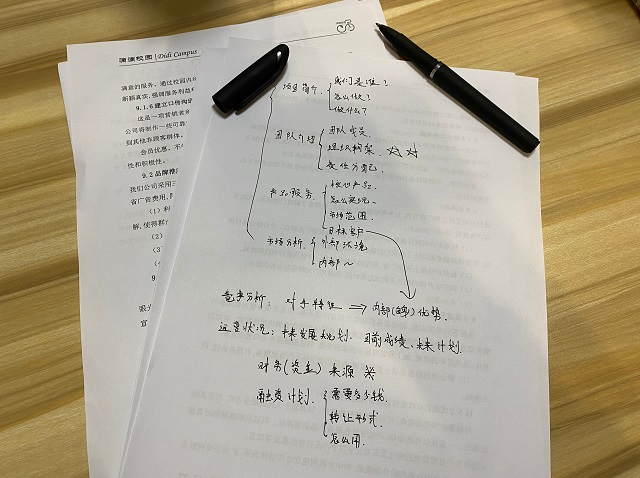 滴滴校园 | Didi Campus
满意的服务。通过校园内
新颖真实,强调服务利益
9.1.6 建立口碑
这是一项营销
公司将制作一些可
到其他非顾客群体。
会员优惠。不
性和积极性。
9.2 品牌推
我们公司采用
省广告费用。
(1)利
解,使得
(2)
(3)
项目简介
我们是谁?
怎么做?
做什么?
团队介绍
团队成员
组织构架
责任分配
产品/服务
核心产品
怎么实现
市场范围
目标客户
市场分析
外部环境
内部~
竞争分析: 对手特征 ⇒ 内部(自身)优势.
运营状况: 未来发展规划. 目前成绩、未来计划.
财务(资金)来源
融资计划
需要多少钱.
转让形式.
怎么用.